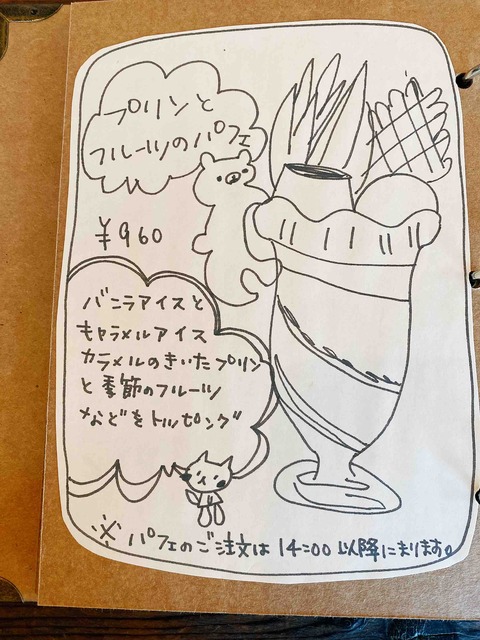 プリンと
フルーツのパフェ
¥960
バニラアイスと
キャラメルアイス
カラメルのきいたプリン
と季節のフルーツ
などをトッピング
※パフェのご注文は14:00以降になります。